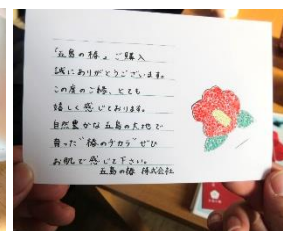 「五島の椿」ご購入
誠にありがとうございます。
この度のご縁、とても
嬉しく感じております。
自然豊かな五島の大地で
育った"椿のチカラ"ぜひ
お肌で感じて下さい。
五島の椿 株式会社